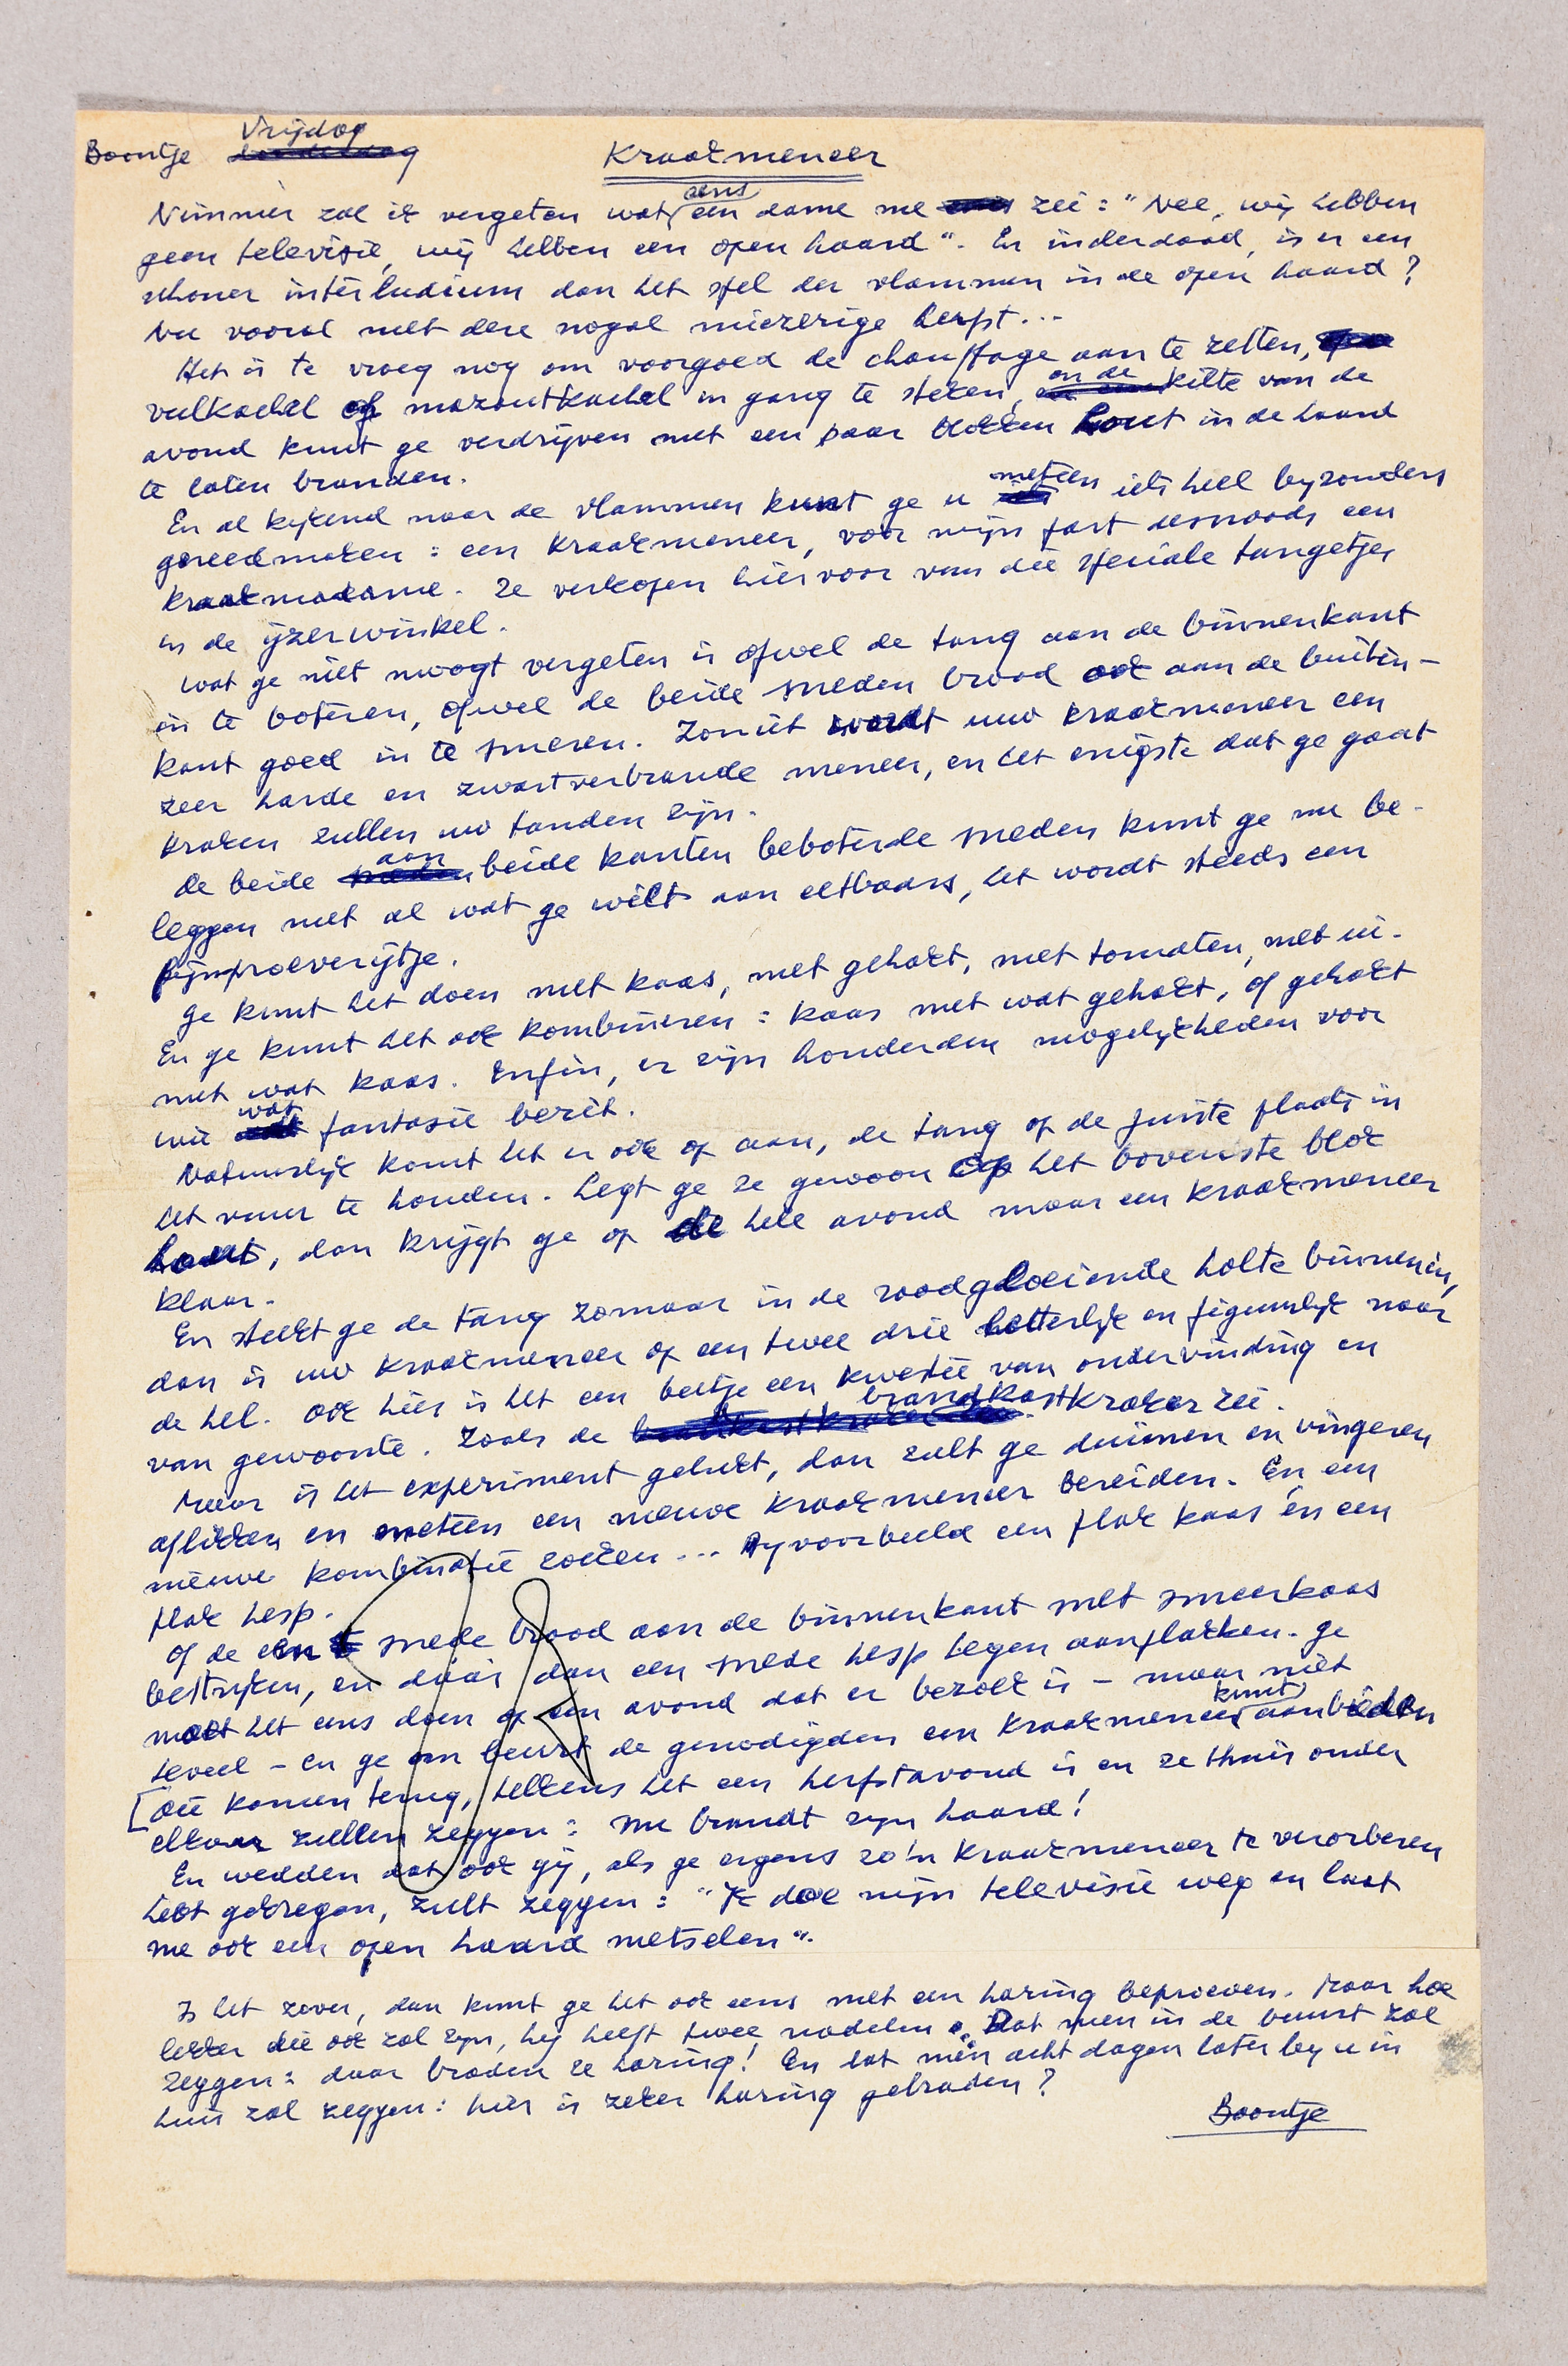 Boontje Vrijdag
Kraakmeneer
Nimmer zal ik vergeten wat eens een dame me zei : "Nee, wij hebben
geen televisie, wij hebben een open haard". En inderdaad, is er een
schoner interludium dan het spel der vlammen in de open haard?
Nu vooral met deze nogal miezerige herfst...
Het is te vroeg nog om voorgoed de chauffage aan te zetten,
vulkachel of mazoutkachel in gang te steken, en de kilte van de
avond kunt ge verdrijven met een paar blokken hout in de haard
te laten branden.
En al kijkend naar de vlammen kunt ge u meteen iets heel bijzonders
gereedmaken : een kraakmeneer, voor mijn part desnoods een
kraakmadame. Ze verkopen hiervoor van die speciale tangetjes
in de ijzerwinkel.
Wat ge niet moogt vergeten is ofwel de tang aan de binnenkant
in te boteren, ofwel de beide sneden brood ook aan de buiten-
kant goed in te smeren. Zoniet wordt uw kraakmeneer een
zeer harde en zwartverbrande meneer, en het enigste dat ge gaat
kraken zullen uw tanden zijn.
De beide aan beide kanten beboterde sneden kunt ge nu be-
leggen met al wat ge wilt aan eetbaars, het wordt steeds een
fijnproeverijtje.
Ge kunt het doen met kaas, met gehakt, met tomaten, met ui.
En ge kunt het ook kombineren : kaas met wat gehakt, of gehakt
met wat kaas. Enfin, er zijn honderden mogelijkheden voor
wie wat fantasie bezit.
Natuurlijk komt het er ook op aan, de tang op de juiste plaats in
het vuur te houden. Legt ge ze gewoon op het bovenste blok
hout, dan krijgt ge op de hele avond maar een kraakmeneer
klaar.
En steekt ge de tang zomaar in de roodgloeiende holte binnenin,
dan is uw kraakmeneer op een twee drie letterlijk en figuurlijk naar
de hel. Ook hier is het een beetje een kwestie van ondervinding en
van gewoonte. Zoals de brandkastkraker zei.
Maar is het experiment gelukt, dan zult ge duimen en vingeren
aflikken en meteen een nieuwe kraakmeneer bereiden. En een
nieuwe kombinatie zoeken... Bijvoorbeeld een plak kaas én een
plak hesp.
Of de een snede brood aan de binnenkant met smeerkaas
bestrijken, en dáár dan een snede hesp tegen aanplakken. Ge
moet het eens doen op een avond dat er bezoek is – maar niet
teveel – en ge om beurt de genodigden een kraakmeneer kunt aanbieden
[Die komen terug, telkens het een herfstavond is en ze thuis onder
elkaar zullen zeggen : nu brandt zijn haard!
En wedden dat ook gij, als ge ergens zo'n kraakmeneer te verorberen
hebt gekregen, zult zeggen : "Ik doe mijn televisie weg en laat
me ook een open haard metselen".
Is het zover, dan kunt ge het ook eens met een haring beproeven. Maar hoe
lekker die ook zal zijn, hij heeft twee nadelen : Dat men in de buurt zal
zeggen : daar braden ze haring! En dat men acht dagen later bij u in
huis zal zeggen : hier is zeker haring gebraden?
Boontje